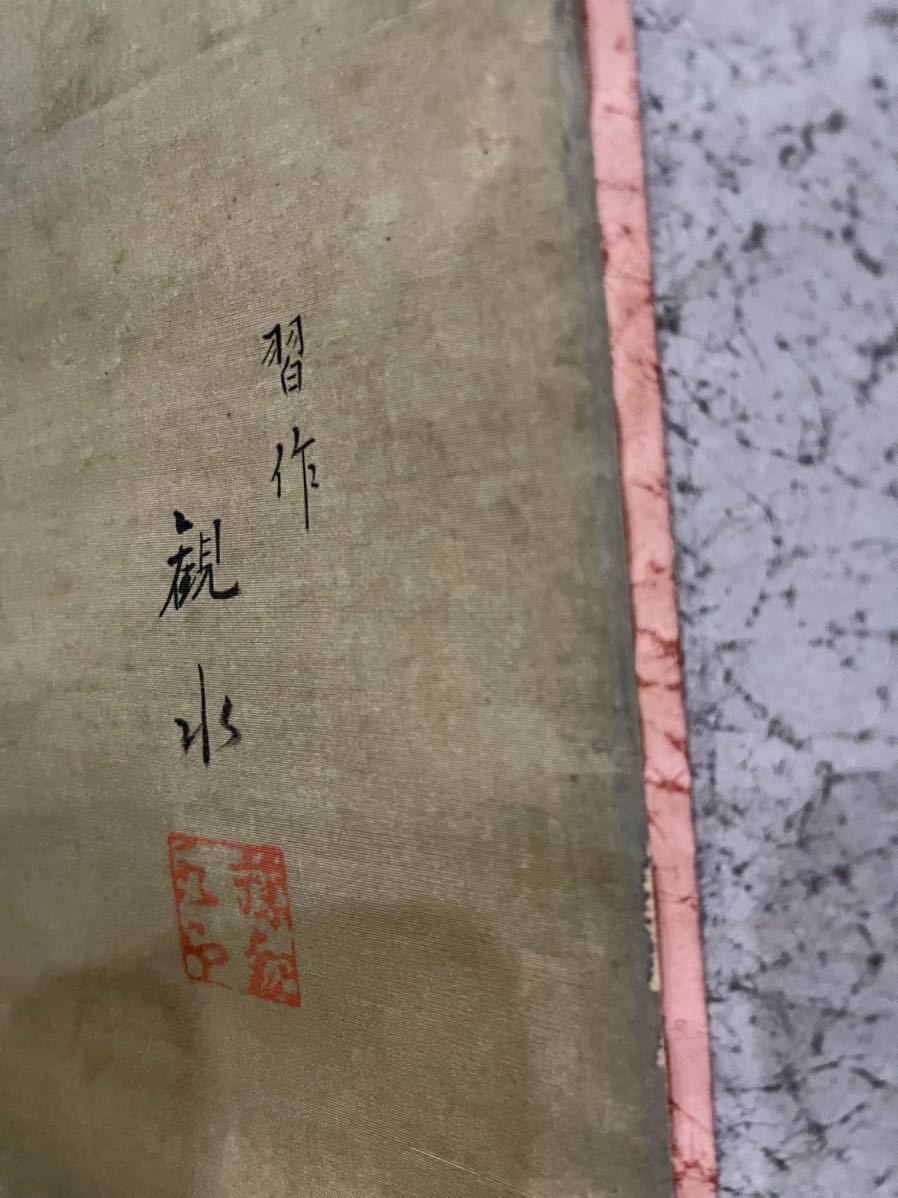 習作
観水